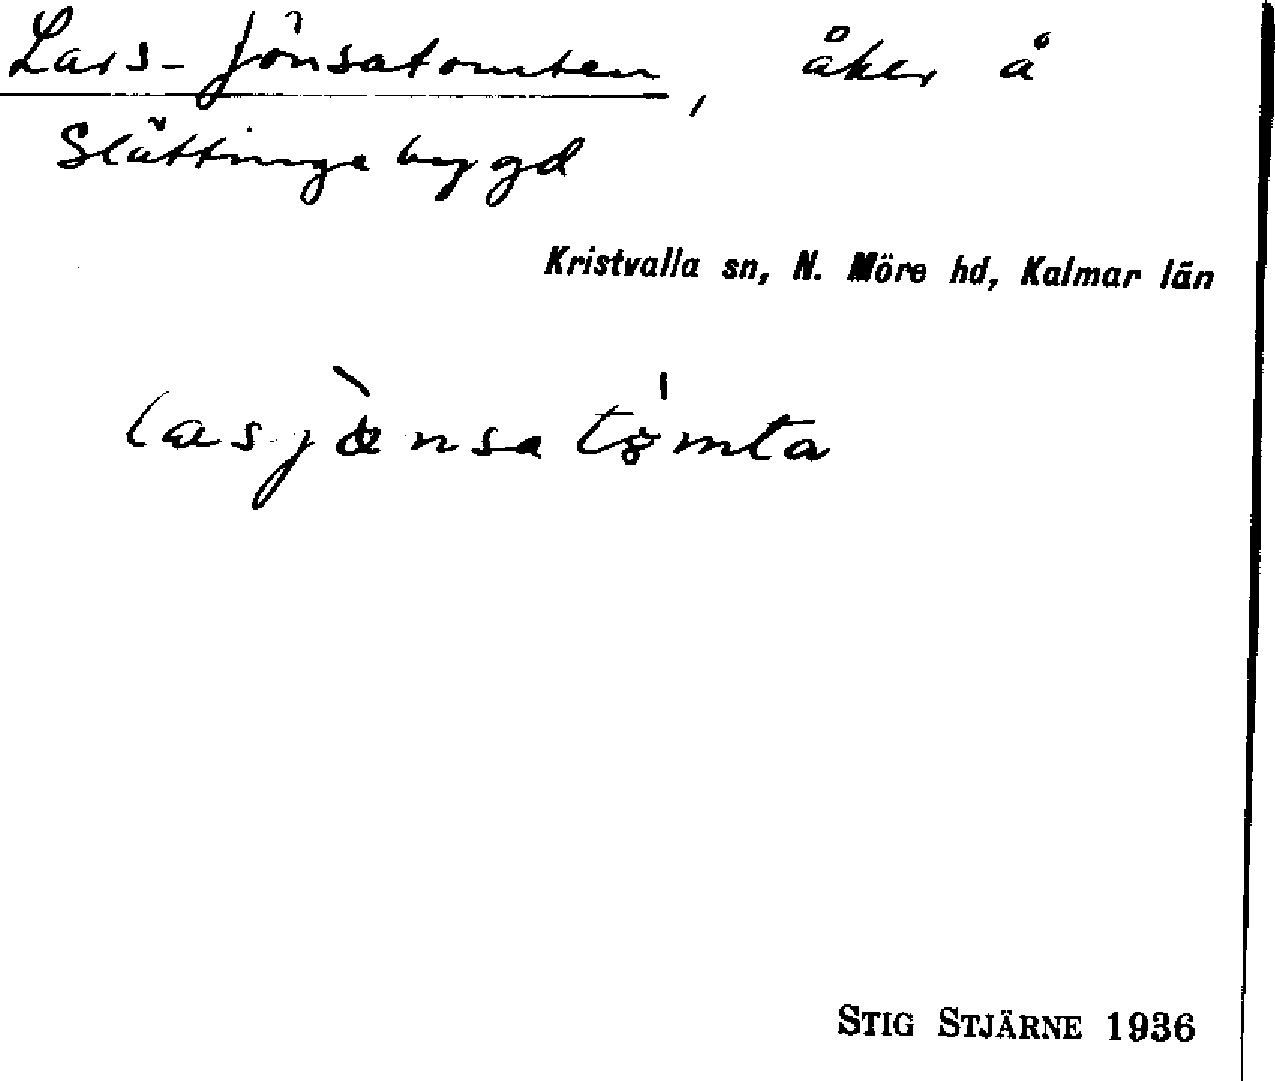 Lars-Jönsatomten, åker å
Slättingebygd
Kristvalla sn, N. Möre hd, Kalmar län
lasjònsatómta
STIG STJÄRNE 1936